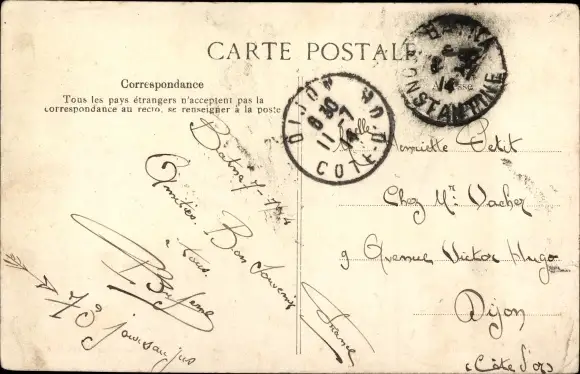 CARTE POSTALE
Correspondance
Tous les pays étrangers n'acceptent pas la
correspondance au recto, se renseigner à la poste
BATNA
CONSTANTINE
DIJON
6 30
11 - 7
14
COTE-D'OR
Batna 7-7-14
Amitiés. Bon Souvenir
à tous.
Mlle Henriette Petit
Chez Mr Vacher
9 Avenue Victor Hugo
Dijon
(Côte d'or)
France